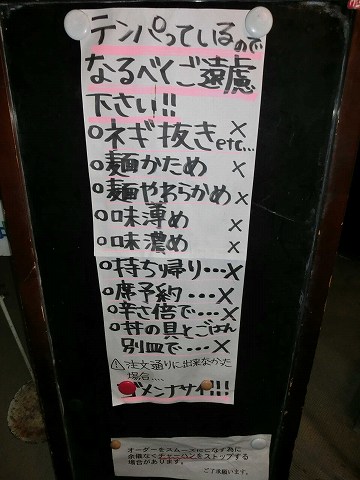 テンパっているので
なるべくご遠慮
下さい!!
○ネギ抜きetc... ×
○麺かため ×
○麺やわらかめ ×
○味薄め ×
○味濃め ×
○持ち帰り…×
○席予約…×
○辛さ倍で…×
○丼の具とごはん
別皿で…×
⚠注文通りに出来なかた
場合....
ゴメンナサイ!!!
オーダーをスムーズにこなす為に
余儀なくチャーハンをストップする
場合があります。
ご了承願います。